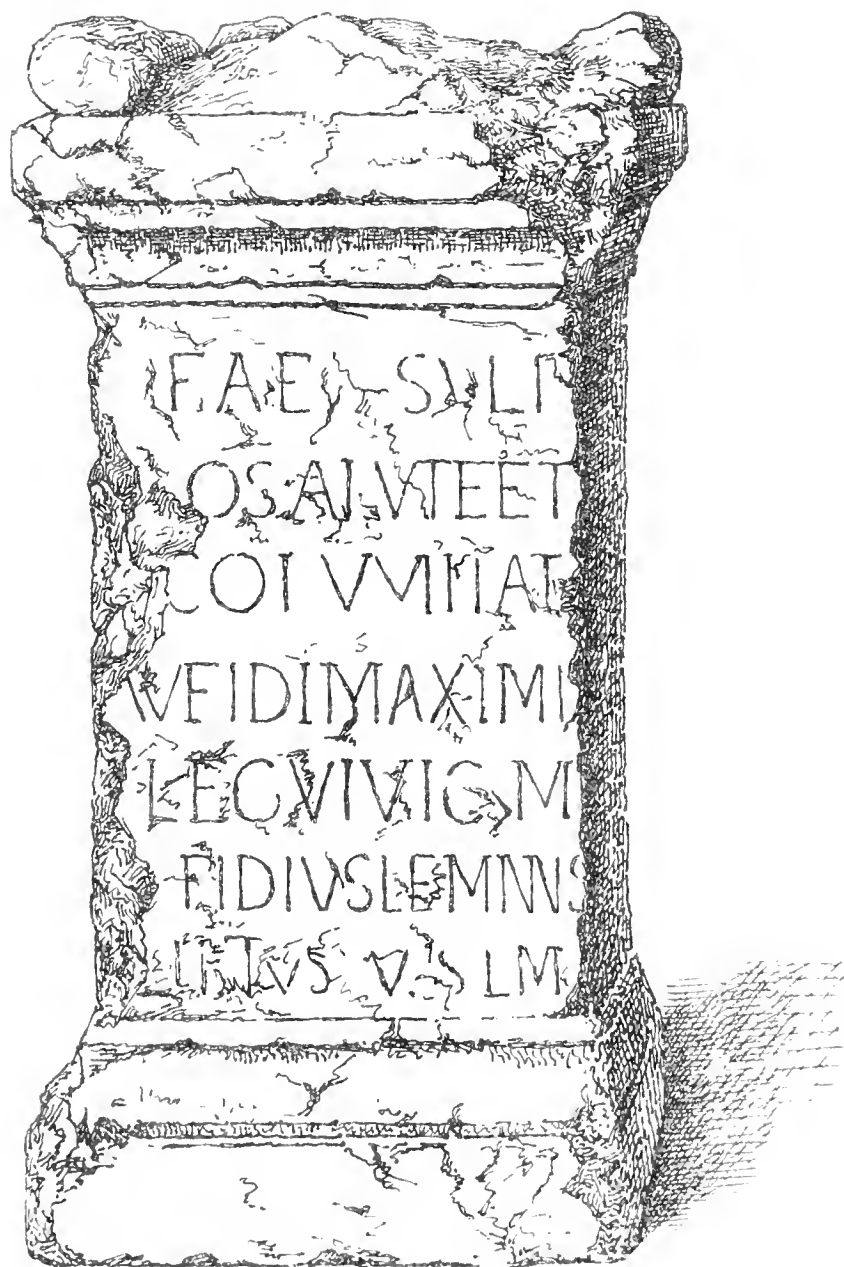 F.AE SVLI
OSALVTEET
COLVMITAT
VFIDIMAXIMI
LEGVIVIC M
FIDIVSLEMNVS
TVS V S LM